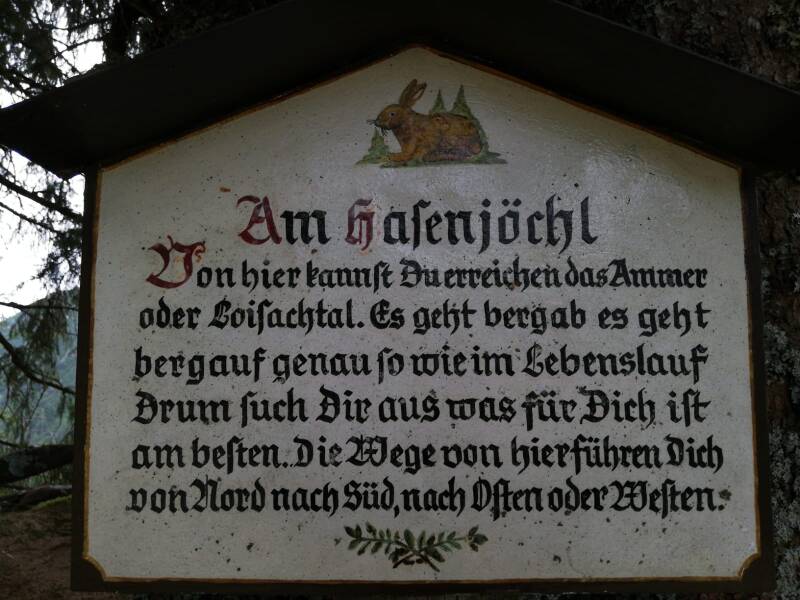 Am Haſenjöchl
Von hier kannſt Du erreichen das Ammer
oder Loiſachtal. Es geht bergab es geht
bergauf genau ſo wie im Lebenslauf
Drum ſuch Dir aus was für Dich iſt
am beſten. Die Wege von hier führen Dich
von Nord nach Süd, nach Oſten oder Weſten.